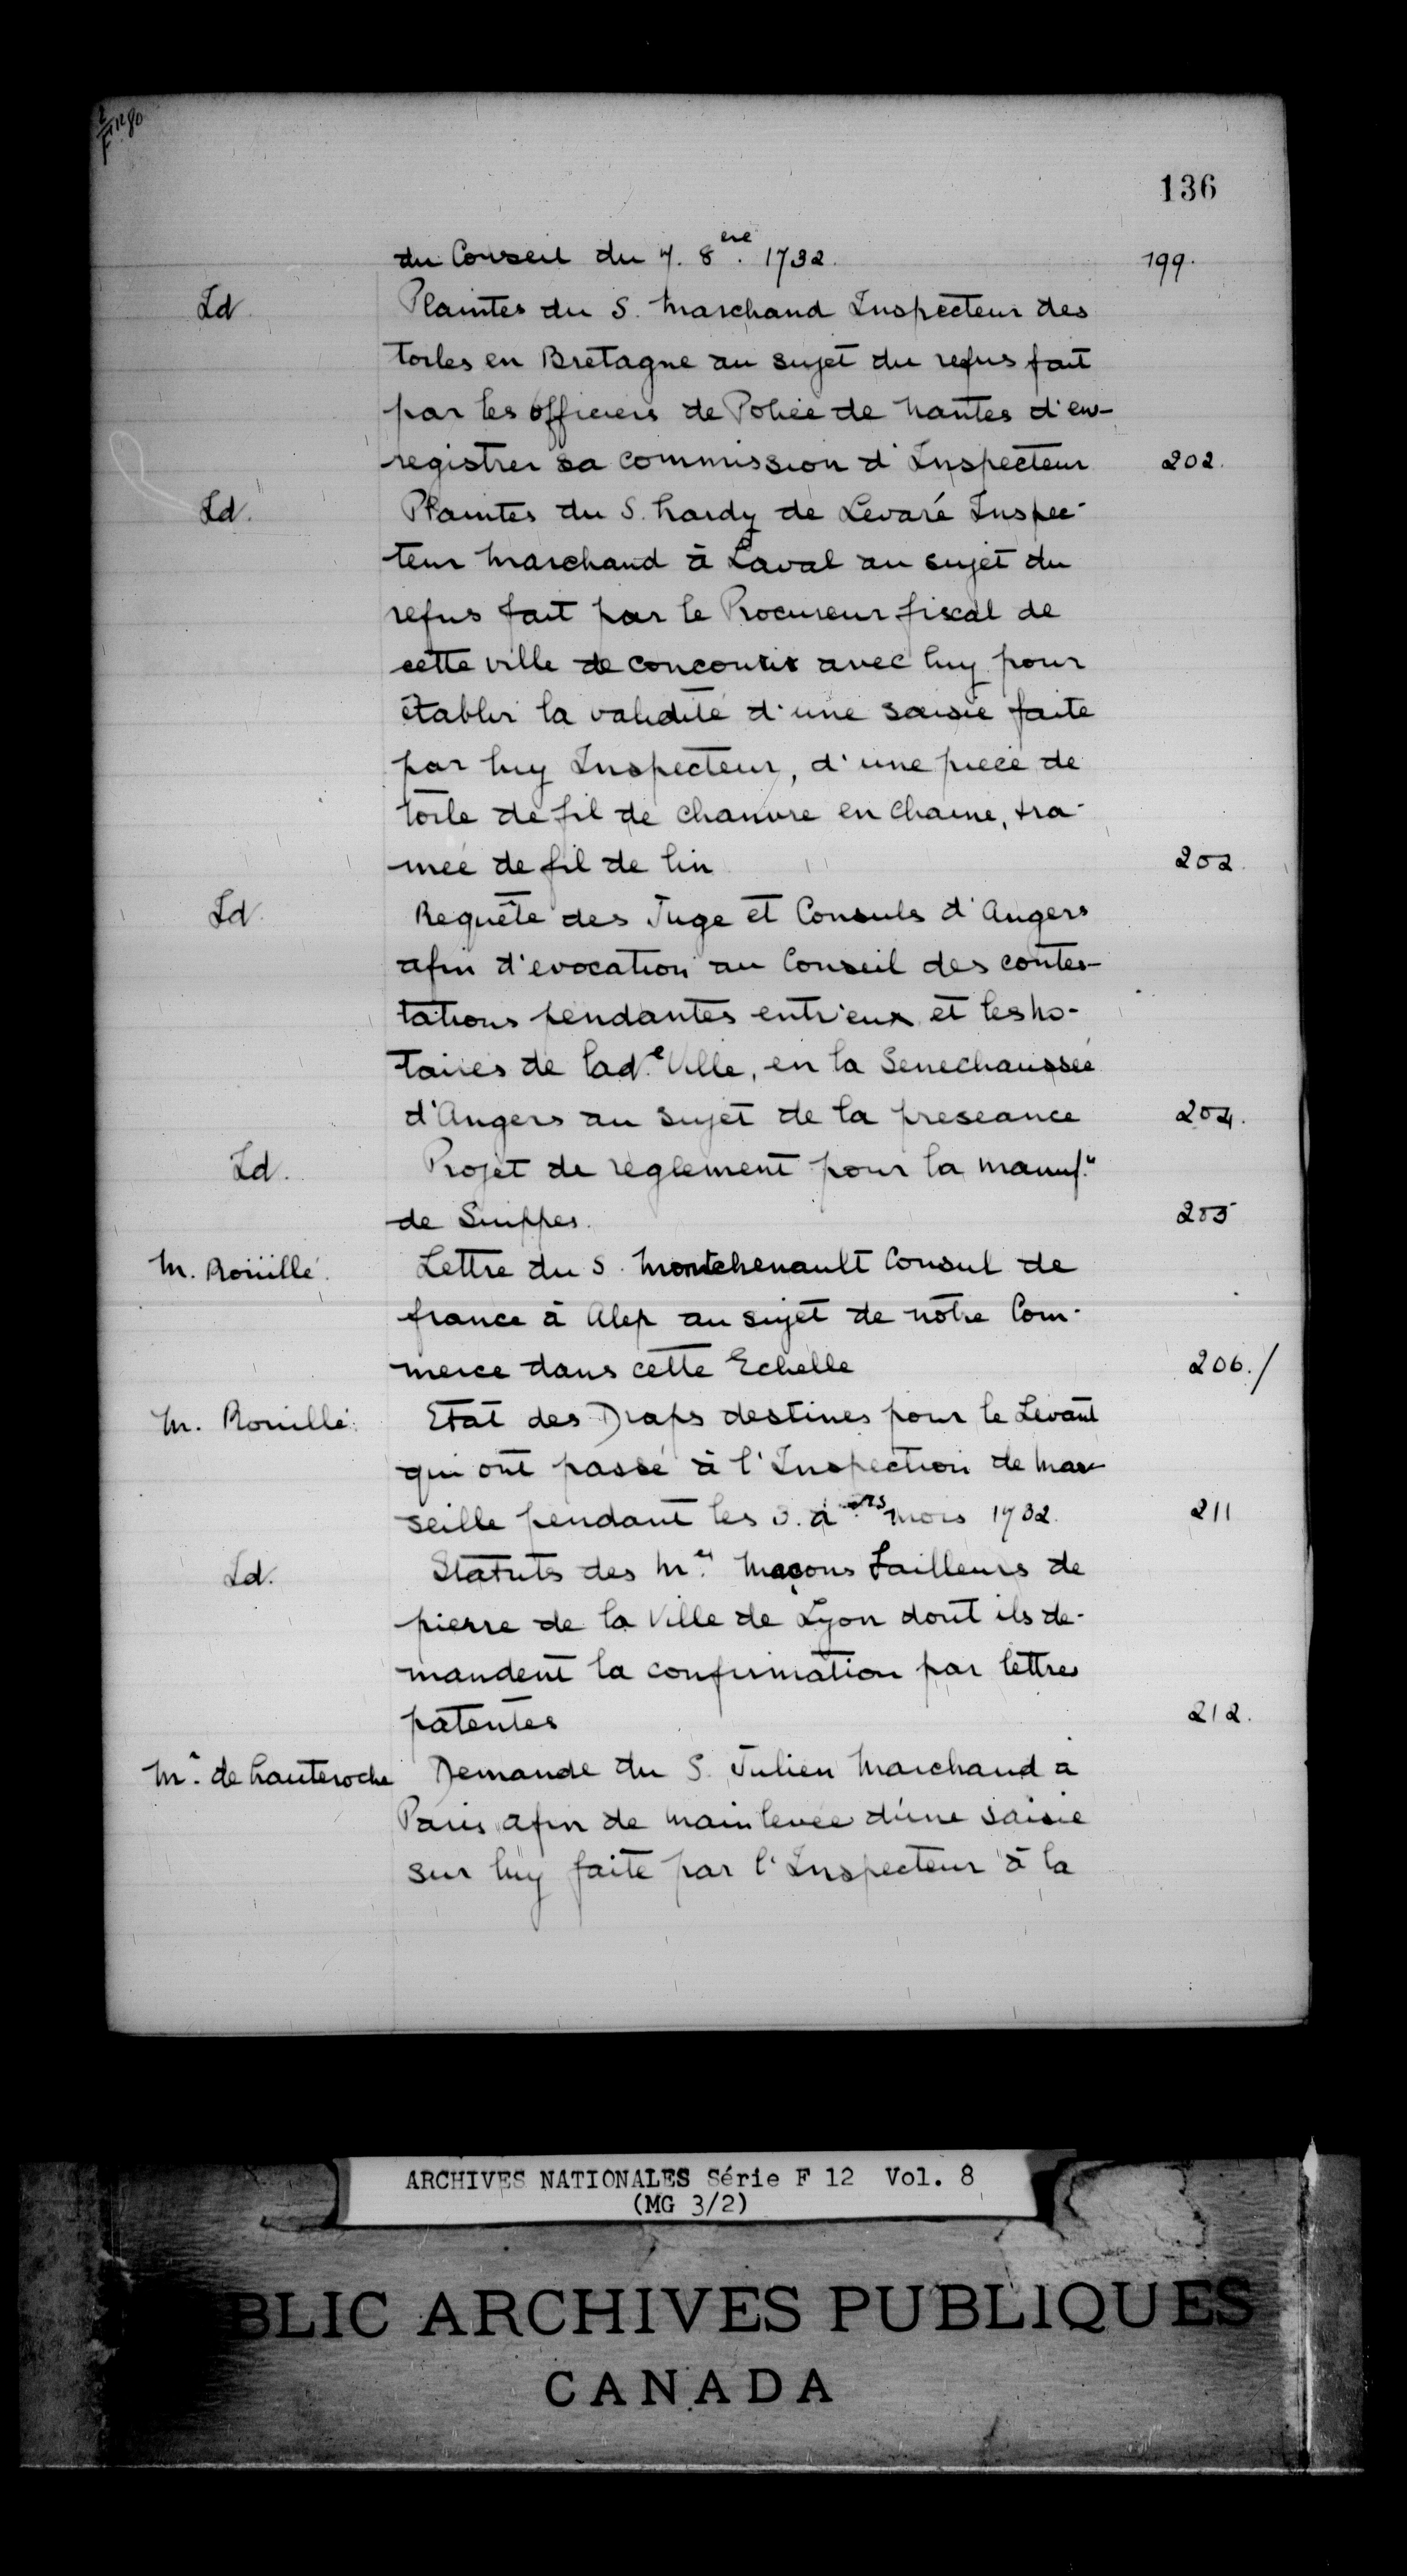 136
du Conseil du 7. 8.ere 1732. 199.
Id. Plaintes du S. Marchand Inspecteur des
toiles en Bretagne au sujet du refus fait
par les officiers de Police de Nantes d'en-
registrer sa commission d'Inspecteur 202.
Id. Plaintes du S. hardy de Levaré Inspec-
teur Marchand à Laval au sujet du
refus fait par le Procureur fiscal de
cette ville de concourir avec luy pour
établir la validité d'une saisie faite
par luy Inspecteur, d'une piece de
toile de fil de chanvre en chaine, tra-
mée de fil de lin 202.
Id. Requête des Juge et Consuls d'Angers
afin d'evocation au Conseil des contes-
tations pendantes entr'eux et les No-
taires de lad.e Ville, en la Senechaussée
d'Angers au sujet de la preseance 204.
Id. Projet de reglement pour la manuf.re
de Suippes. 205
M. Roüillé. Lettre du S. Montchenault Consul de
france à Alep au sujet de nôtre Com-
merce dans cette Echelle 206./
M. Rouillé. Etat des Draps destines pour le Levant
qui ont passé à l'Inspection de Mar-
seille pendant les 3. d.ers mois 1732. 211
Id. Statuts des M.es Maçons tailleurs de
pierre de la Ville de Lyon dont ils de-
mandent la confirmation par lettres
patentes 212.
M.r de hauteroche Demande du S. Julien Marchand à
Paris afin de main levée d'une saisie
sur luy faite par l'Inspecteur à la
ARCHIVES NATIONALES Série F 12 Vol. 8
(MG 3/2)
BLIC ARCHIVES PUBLIQUES
CANADA